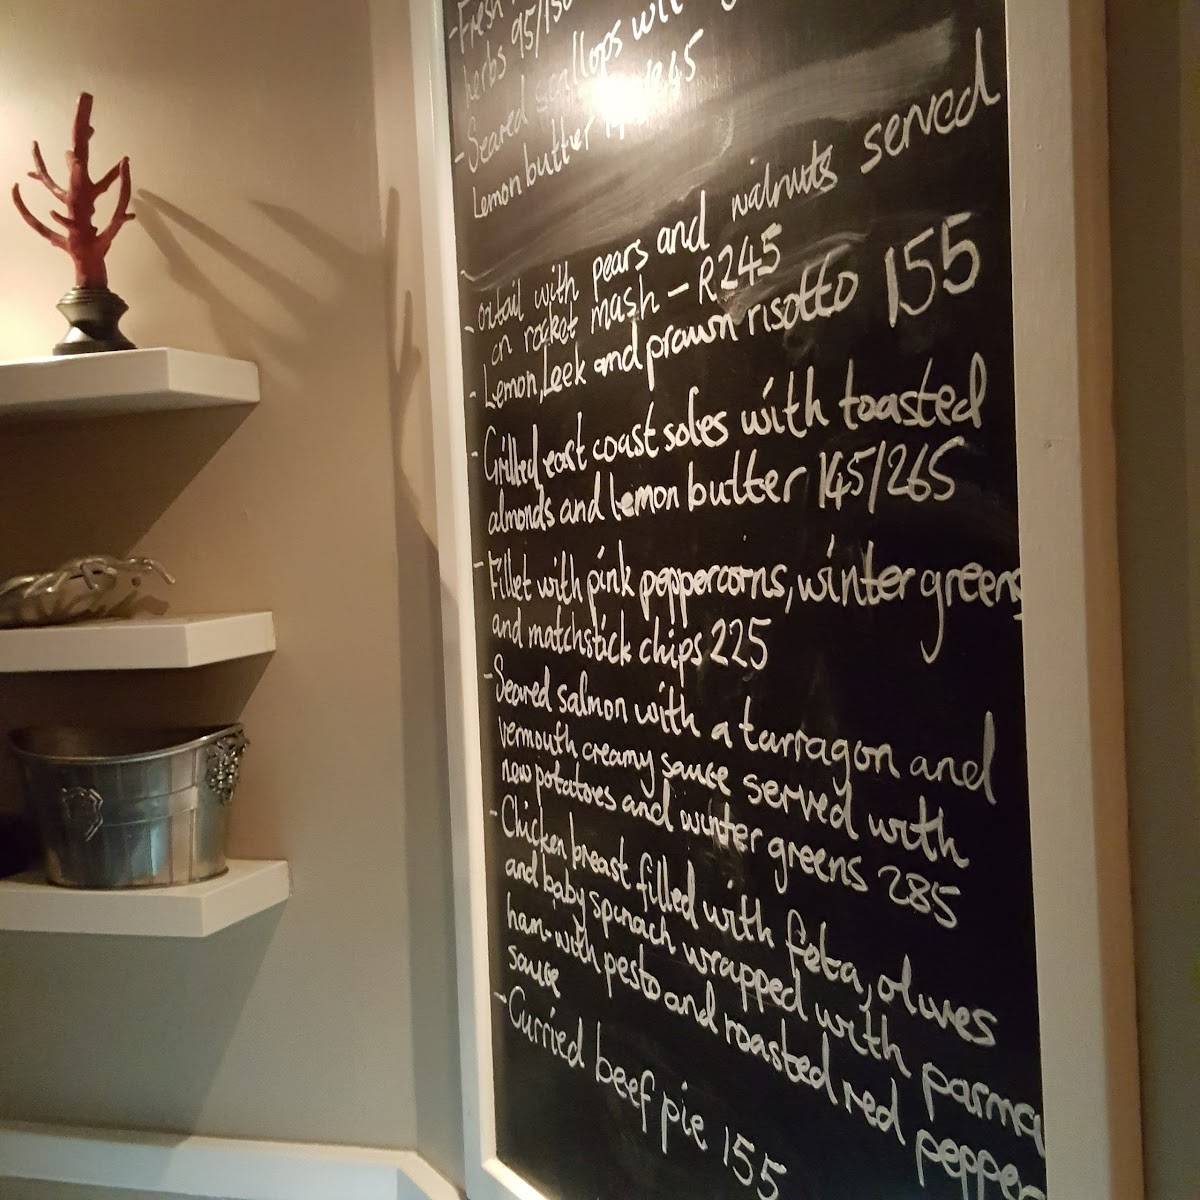 - Fresh
herbs 95/150
- Seared scallops with
Lemon butter
- oxtail with pears and walnuts served
on rocket mash - R245
- Lemon, Leek and prawn risotto 155
- Grilled east coast soles with toasted
almonds and lemon butter 145/265
- Fillet with pink peppercorns, winter greens
and matchstick chips 225
- Seared salmon with a tarragon and
vermouth creamy sauce served with
new potatoes and winter greens 285
- Chicken breast filled with feta, olives
and baby spinach wrapped with parma
ham - with pesto and roasted red pepper
sauce
- Curried beef pie 155